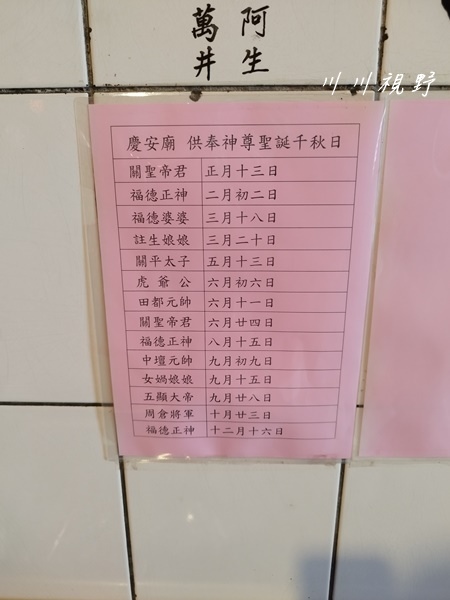 阿生
萬井
川川視野
慶安廟 供奉神尊聖誕千秋日
關聖帝君 正月十三日
福德正神 二月初二日
福德婆婆 三月十八日
註生娘娘 三月二十日
關平太子 五月十三日
虎爺公 六月初六日
田都元帥 六月十一日
關聖帝君 六月廿四日
福德正神 八月十五日
中壇元帥 九月初九日
女媧娘娘 九月十五日
五顯大帝 九月廿八日
周倉將軍 十月廿三日
福德正神 十二月十六日